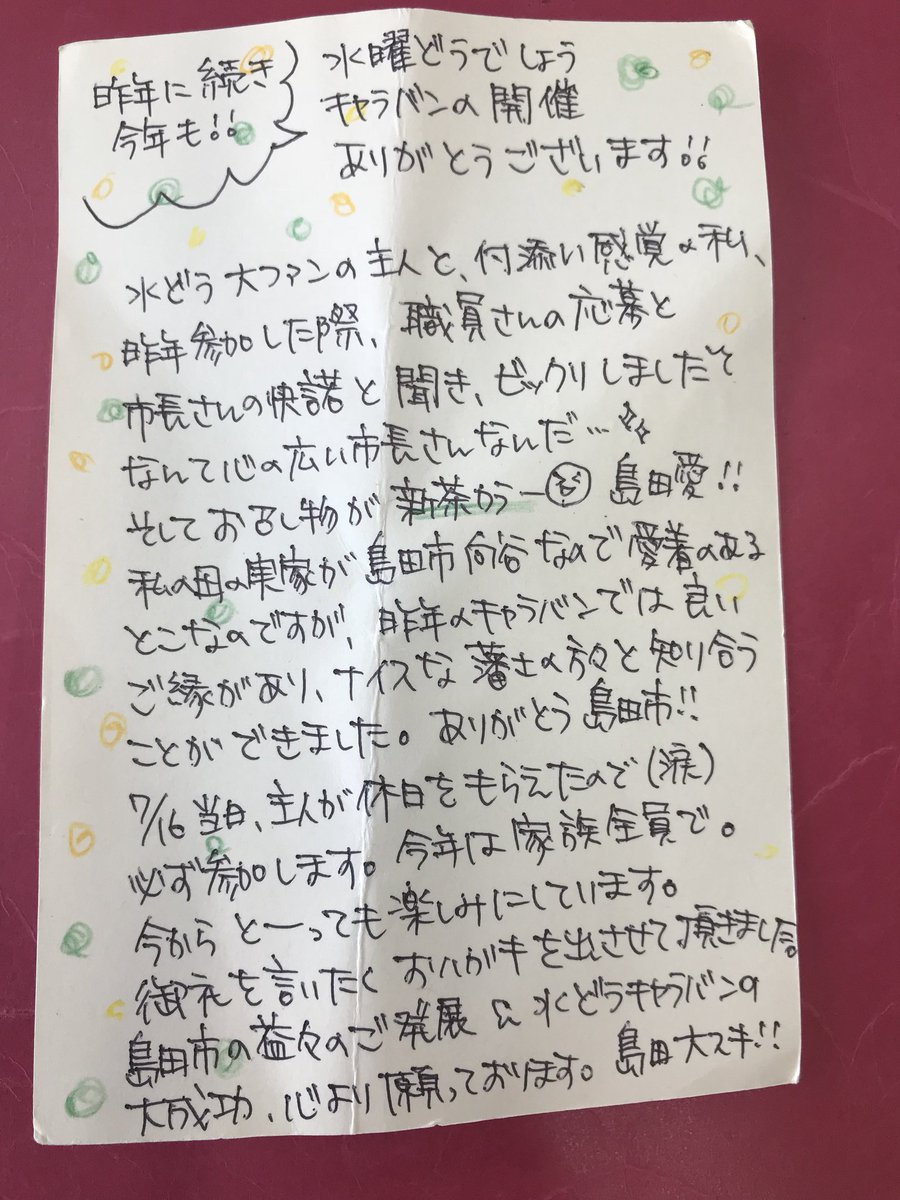 昨年に続き
今年も!!
水曜どうでしょう
キャラバンの開催
ありがとうございます!!
水どう大ファンの主人と、付添い感覚の私、
昨年参加した際、職員さんの応募と
市長さんの快諾と聞き、ビックリしました
なんて心の広い市長さんなんだ…
そしてお召し物が新茶カラー 島田愛!!
私の母の実家が島田市向谷なので愛着のある
とこなのですが、昨年のキャラバンでは良い
ご縁があり、ナイスな藩士の方々と知り合う
ことができました。ありがとう島田市!!
7/16当日、主人が休日をもらえたので(涙)
必ず参加します。今年は家族全員で。
今からとーっても楽しみにしています。
御礼を言いたくおハガキを出させて頂きました。
島田市の益々のご発展&水どうキャラバンの
大成功、心より願っております。島田大スキ!!